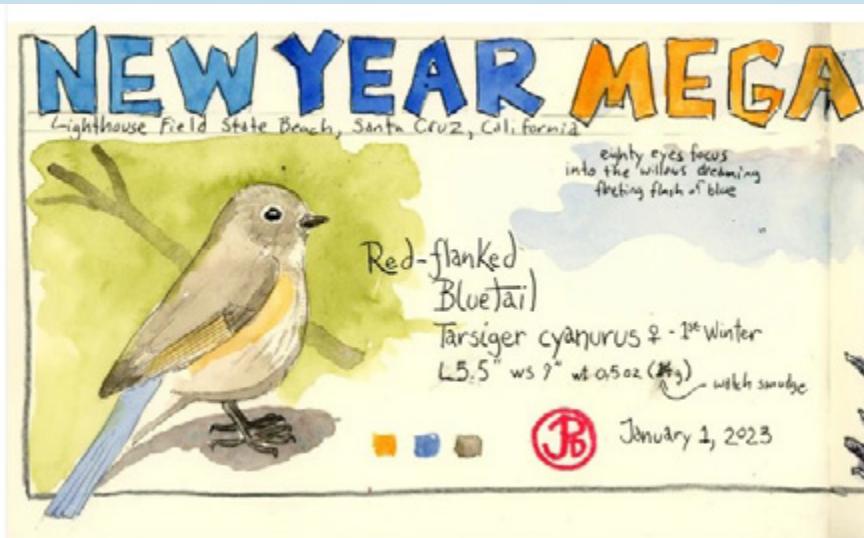 NEW YEAR MEGA
Lighthouse Field State Beach, Santa Cruz, California
eighty eyes focus
into the willows dreaming
fleeting flash of blue
Red-flanked
Bluetail
Tarsiger cyanurus ♀ - 1st Winter
L5.5" ws 9" wt 0.5oz (14g)
witch smudge
JPB
January 1, 2023